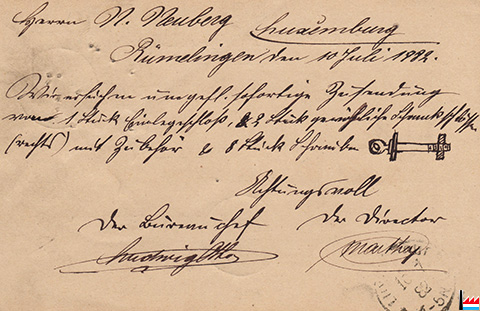 Herrn N. Neuberg Luxemburg
Rümelingen den 10 Juli 1882.
Wir ersuchen um gefl. sofortige Zusendung
von 1 Stück Einlegeschloß, & 2 Stück gewöhnliche Schrankschlösser
(rechts) mit Zubehör & 8 Stück Schrauben
Achtungsvoll
Der Bureauchef Der Director
Ludwig